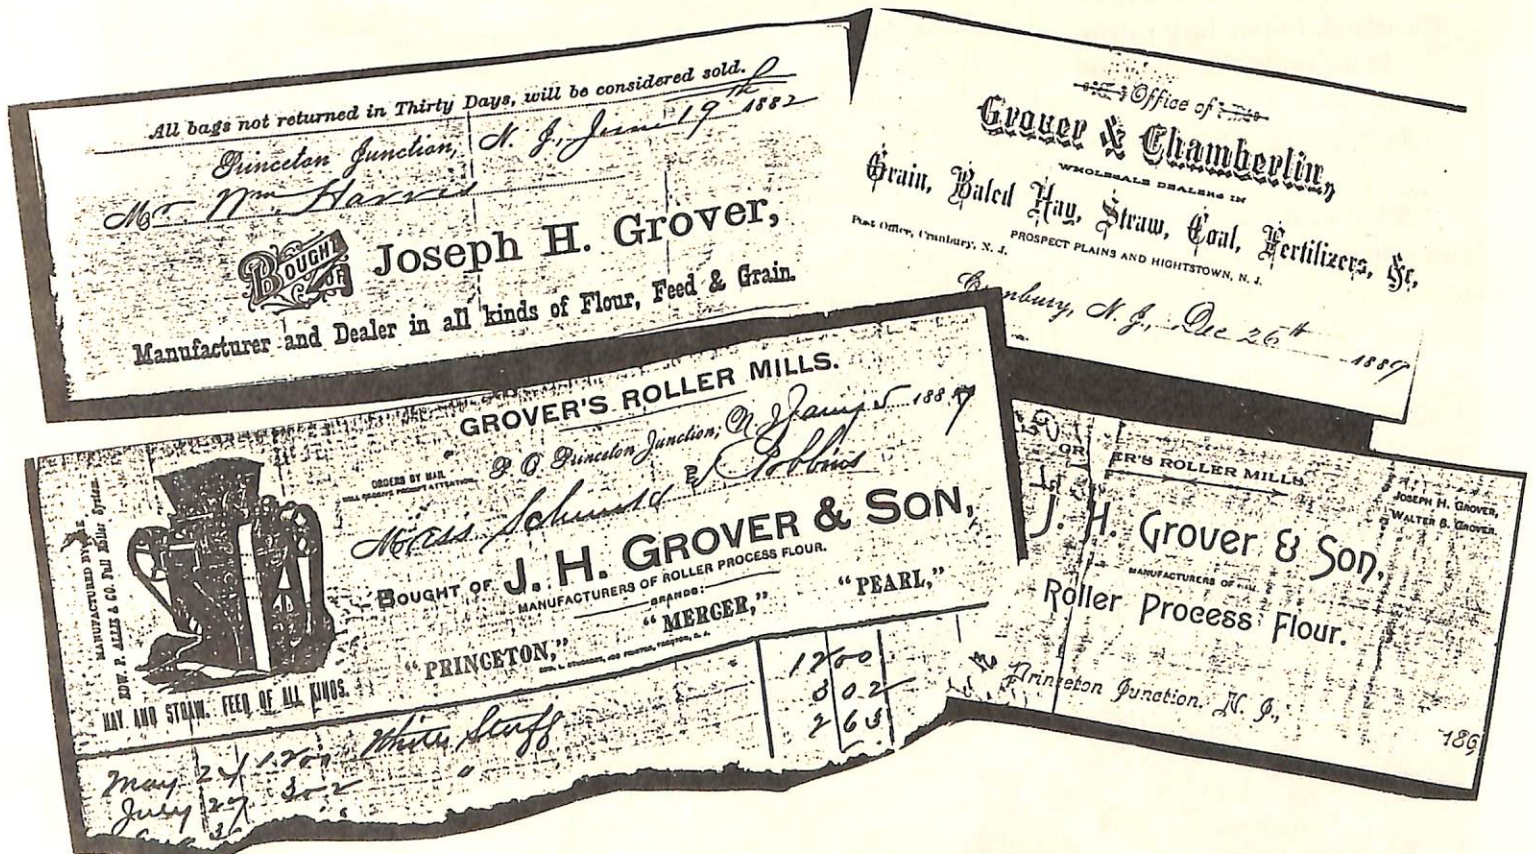 All bags not returned in Thirty Days, will be considered sold.
Princeton Junction, N. J., June 19th 1882
Mr. Wm. Harris
BOUGHT OF Joseph H. Grover,
Manufacturer and Dealer in all kinds of Flour, Feed & Grain.
Office of
Grover & Chamberlin,
WHOLESALE DEALERS IN
Grain, Baled Hay, Straw, Coal, Fertilizers, &c,
PROSPECT PLAINS AND HIGHTSTOWN, N. J.
Post Office, Cranbury, N. J.
nbury, N. J., Dec 26th 1889
GROVER'S ROLLER MILLS.
P O Princeton Junction, N J 5 1887
ORDERS BY MAIL
WILL RECEIVE PROMPT ATTENTION.
Robbins
BOUGHT OF J. H. GROVER & SON,
MANUFACTURERS OF ROLLER PROCESS FLOUR.
BRANDS:
"PRINCETON," "MERCER," "PEARL,"
MANUFACTURED BY
EDW. P. ALLIS & CO. Full Roller System.
HAY AND STRAW. FEED OF ALL KINDS.
May 24 1200 White Stuff 1200
July 27 302 " 302
263
ER'S ROLLER MILLS.
JOSEPH H. GROVER,
WALTER B. GROVER.
J. H. Grover & Son,
MANUFACTURERS OF
Roller Process Flour.
Princeton Junction, N. J.,
189